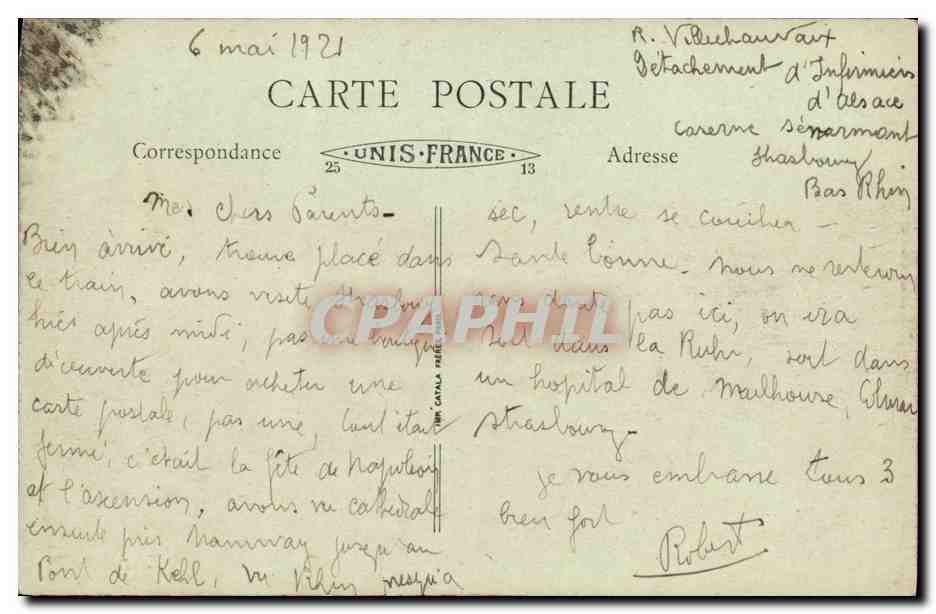 6 mai 1921
R. Villechauvaix
Détachement d'Infirmiers
d'Alsace
Caserne Sénarmont
Strasbourg
Bas Rhin
CARTE POSTALE
Correspondance
UNIS-FRANCE
25 13
Adresse
Mes chers Parents -
Bien arrivé, trouve place dans
le train, avons visité Strasbourg
hier après midi, pas une boutique
découverte pour acheter une
carte postale, pas une, tout était
fermé, c'était la fête de Napoléon
et l'ascension, avons vu cathédrale
ensuite pris tramway jusqu'au
Pont de Kehl, vu Rhin presqu'à
sec, rentre se coucher -
Santé bonne - nous ne resterons
sans doute pas ici, on ira
soit dans la Ruhr, soit dans
un hopital de Mulhouse, Colmar
Strasbourg -
Je vous embrasse tous 3
bien fort
Robert
IMP. CATALA FRÈRES, PARIS
CPAPHIL